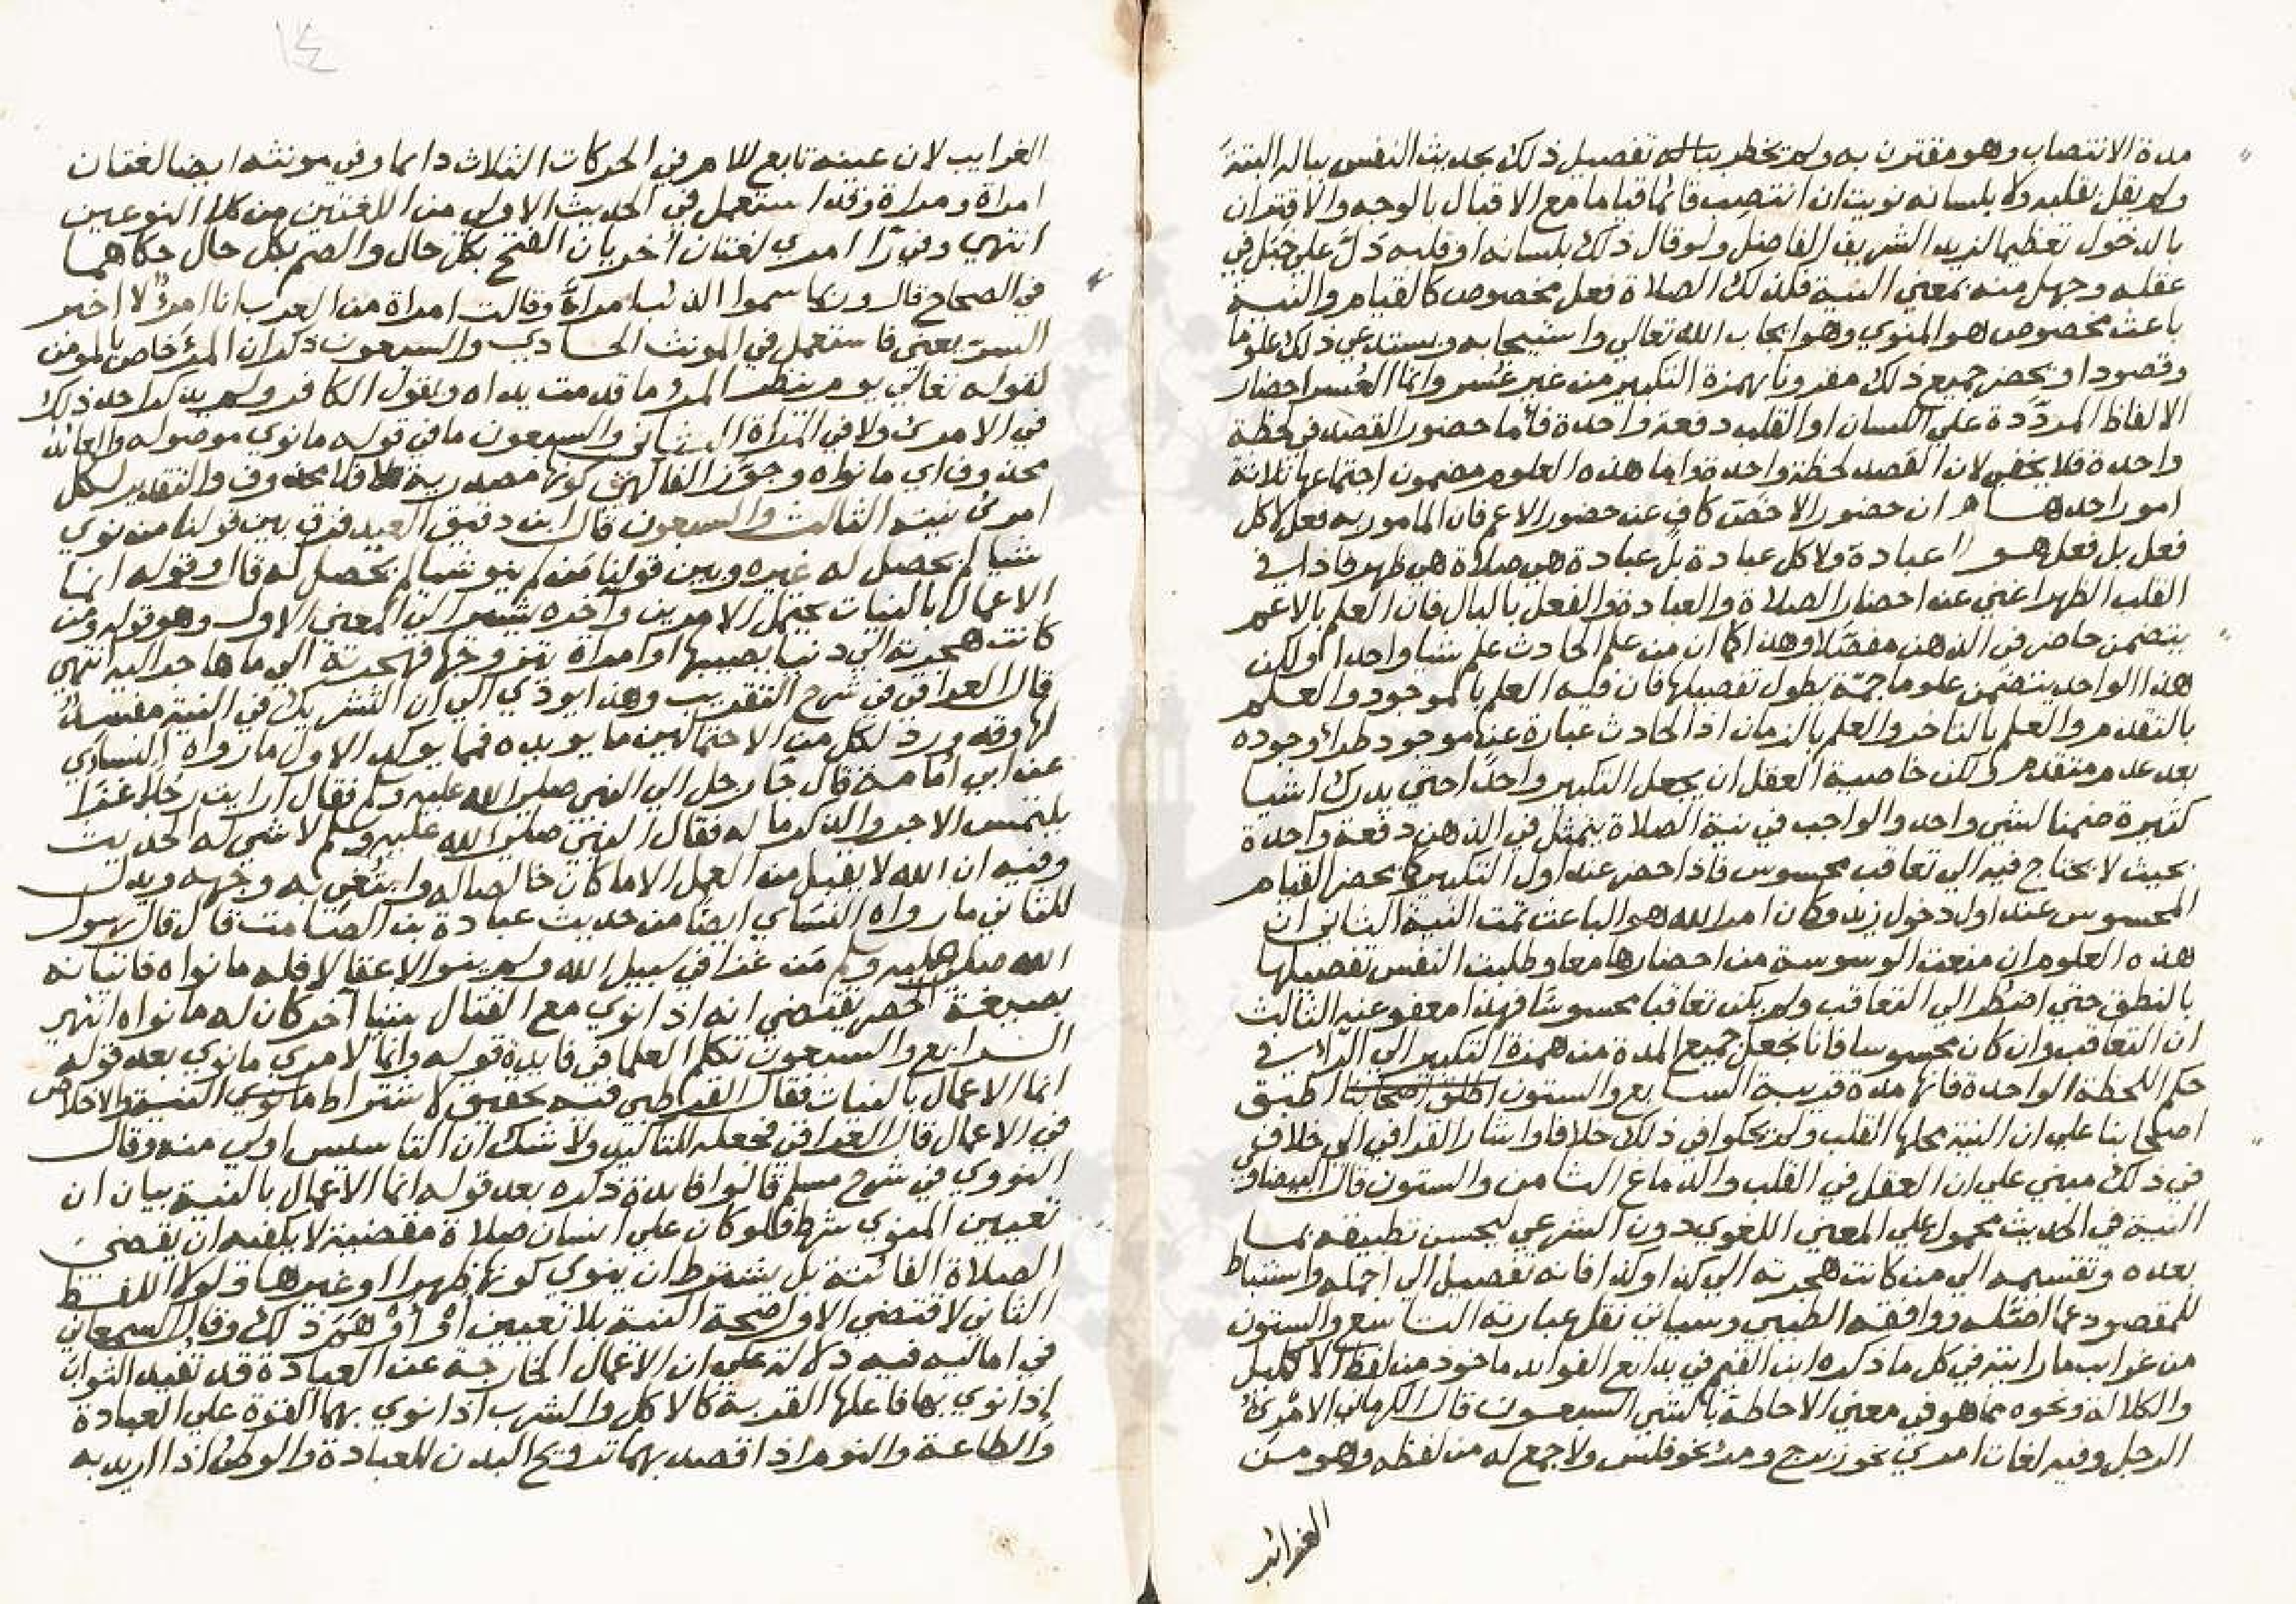 مدة الانتصاب وهو مقترن به ولم تخطر بباله تفصيل ذلك بحديث النفس بباله البتة
ولم يقل بقلبه ولا بلسانه نويت ان انتصب قائما قياما مع الاقبال بالوجه والاقتران
بالدخول تعظيما لزيد الشريف الفاضل ولو قال ذلك بلسانه او قلبه دل على خبل في
عقله وجهل منه بمعني النية فكذلك الصلاة فعل مخصوص كالقيام والنية
باعث مخصوص هو المنوي وهو ايجاب الله تعالي واستيجابه ويستدعي ذلك علوما
وقصودا ويحضر جميع ذلك مقرونا بهمزة التكبير من غير عسر وانما العسر احضار
الالفاظ المرددة علي اللسان او القلب دفعة واحدة فأما حضور القصد في لحظة
واحدة فلا يخفي لان القصد لحظة واحدة واما هذه العلوم مضمون اجتماعها ثلاثة
امور احدهـا ان حضور الاخص كاف عن حضور الاعم فان المامور به فعل لا كل
فعل بل فعل هـو عبادة ولا كل عبادة بل عبادة هي صلاة هي ظهر فاذا في
القلب الظهر اغني عن احضار الصلاة والعبادة والفعل بالبال فان العلم بالاعم
يتضمن حاضر في الذهن مفصلا وهذا كما ان من علم الحادث علم شيا واحدا ولكن
هذا الواحد يتضمن علوما جمة يطول تفصيلها فان فيه العلم بالموجود والعلم
بالتقدم والعلم بالتاخر والعلم بالزمان اذ الحادث عبارة عن موجود طرأ وجوده
بعد عدم متقدم ولكن خاصية العقل ان يجعل التكبير واحدا حتي يدرك اشيا
كثيرة ضمنا لشي واحد والواجب في نية الصلاة يتمثل في الذهن دفعة واحدة
بحيث لا يحتاج فيه الي تعاقب محسوس فاذا حضر عند اول التكبير كما يحضر القيام
المحسوس عند اول دخول زيد وكان امر الله هو الباعث تمت النية الثاني ان
هذه العلوم ان منعت الوسوسة من احضارها معا وطلبت النفس تفصيلها
بالنطق حتي اضطر الي التعاقب ولم يكن تعاقبا محسوسا فهذا معفو عنه الثالث
ان التعاقب وان كان محسوسا فانا نجعل جميع المدة من همزة التكبير الي الراء في
حكم اللحظة الواحدة فانها مدة قريبة السابع والستون اطبق
اصحابنا علي ان النية محلها القلب ولم يحكوا في ذلك خلافا واشار القرافي الي خلاف
في ذلك مبني علي ان العقل في القلب والدماغ الثامن والستون قال البيضاوي
النية في الحديث محمولة علي المعني اللغوي دون الشرعي ليحسن تطبيقه بما
بعده وتقسيمه الي من كانت هجرته الي كذا وكذا فانه تفصيل الي اجمله واستنباط
للمقصود عما اصله ووافقه الطيبي وسياتي نقل عبارته التاسع والستون
من غرايب ما رايته في كل ما ذكره ابن القيم في بدايع الفوايد ماخوذ من لفظ الاكليل
والكلالة ونحوه مما هو في معني الاحاطة بالشي السبعون قال الكرماني الامرئ
الرجل وفيه لغات امرئ نحو زبرج ومرء نحو فلس ولا جمع له من لفظه وهو من
الغرائب
١٤
الغرايب لان عينه تابع للام في الحركات الثلاث دايما وفي مونثه ايضا لغتان
امراة ومراة وقد استعمل في الحديث الاولي من اللغتين من كلا النوعين
انتهي وفي را امرئ لغتان اخريان الفتح بكل حال والضم بكل حال حكاهما
في الصحاح قال وربما سموا الذئب امرأ وقالت امراة من العرب انا امرؤ لا اخبر
السر يعني فاستعمل في المونث الحـادي والسبعون ذكر ان المرء خاص بالمومن
لقوله تعالي يوم ينظر المرء ما قدمت يداه ويقول الكافر ولم يذكر احد ذلك
في الامرئ ولا في المراة الثـاني والسبعون ما في قوله ما نوي موصولة والعائد
محذوف اي ما نواه وجوز الفاكهي كونها مصدرية فلا محذوف والتقدير لكل
امرئ نيته الثالث والسبعون قال ابن دقيق العيد فرق بين قولنا من نوي
شيا لم يحصل له غيره وبين قولنا من لم ينو شيا لم يحصل له قال وقوله انما
الاعمال بالنيات يحتمل الامرين وآخره يشير الي المعني الاول وهو قوله ومن
كانت هجرته الي دنيا يصيبها او امراة يتزوجها فهجرته الي ما هاجر اليه انتهي
قال العراقي في شرح التقريب وهذا يودي الي ان التشريك في النية مفسد
لها وقد ورد لكل من الاحتمالين ما يويده فمما يوكد الاول ما رواه النساي
عن ابي امامة قال جا رجل الي النبي صلي الله عليه وسلم فقال ارايت رجلا غزا
يلتمس الاجر والذكر ما له فقال النبي صلي الله عليه وسلم لا شي له الحديث
وفيه ان الله لا يقبل من العمل الا ما كان خالصا له وابتغي به وجهه ويدل
للثاني ما رواه النساي ايضا من حديث عبادة بن الصامت قال قال رسول
الله صلي الله عليه وسلم من غزا في سبيل الله ولم ينو الا عقالا فله ما نواه فاتيانه
بصيغة الحصر يقتضي انه اذا نوي مع القتال شيا آخر كان له ما نواه انتهي
الـرابع والسبعون تكلم العلما في فايدة قوله وانما لامرئ ما نوي بعد قوله
انما الاعمال بالنيات فقال القرطبي فيه تحقيق لاشتراط النية والاخلاص
في الاعمال قال العراقي فجعله للتاكيد ولا شك ان التاسيس اولي منه وقال
النووي في شرح مسلم قالوا فايدة ذكره بعد قوله انما الاعمال بالنية بيان ان
تعيين المنوي شرط فلو كان علي انسان صلاة مقضية لا يكفيه ان يقضي
الصلاة الفائتة بل يشترط ان ينوي كونها ظهرا او غيرها ولولا اللفظ
الثاني لاقتضي الاول صحة النية بلا تعيين او اوهم ذلك وقال السمعاني
في اماليه فيه دلالة علي ان الاعمال الخارجة عن العبادة قد تفيد الثواب
اذا نوي بها فاعلها القربة كالاكل والشرب اذا نوي بهما القوة علي العبادة
والطاعة والنوم اذا قصد بهما ترويح البدن للعبادة والوطئ اذا اريد به